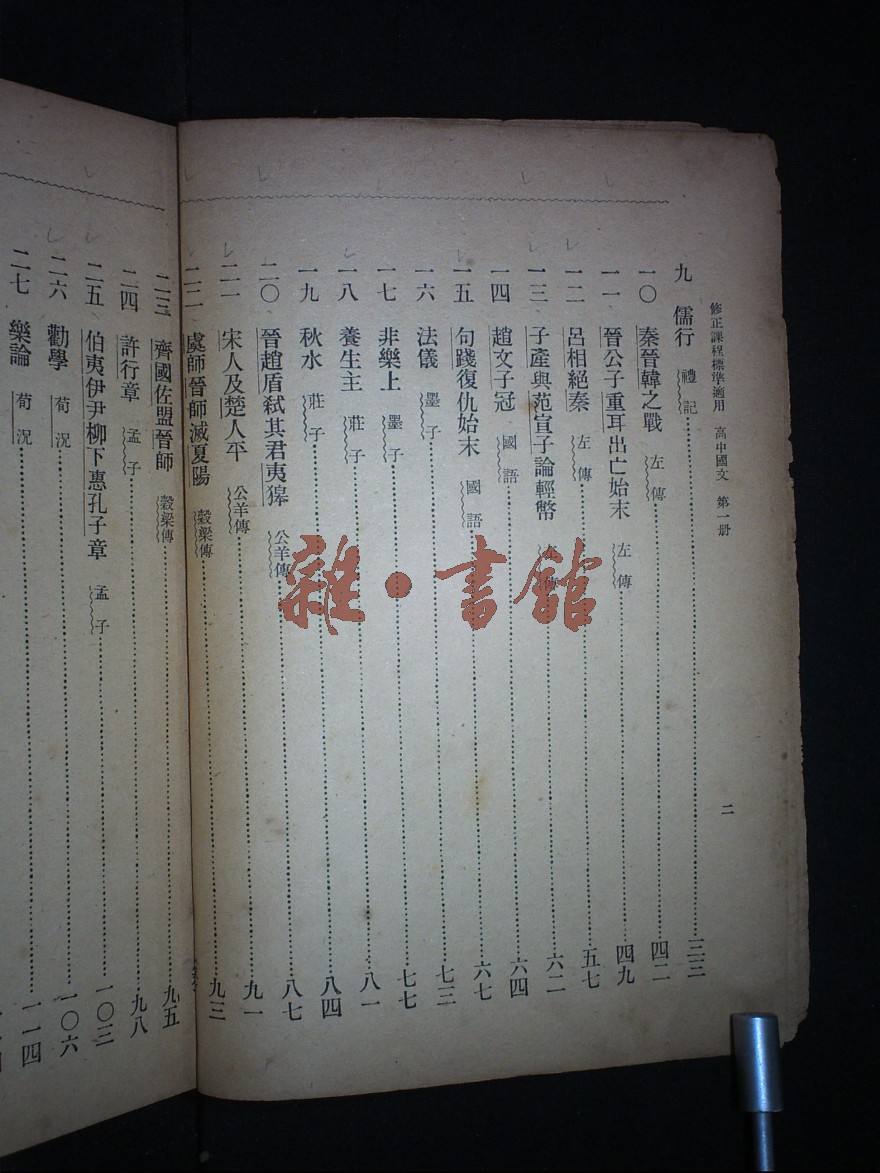 修正課程標準適用 高中國文 第一册
二
九 儒行 禮記 三三
一〇 秦晉韓之戰 左傳 四二
一一 晉公子重耳出亡始末 左傳 四九
一二 呂相絕秦 左傳 五七
一三 子產與范宣子論輕幣 左傳 六二
一四 趙文子冠 國語 六四
一五 句踐復仇始末 國語 六七
一六 法儀 墨子 七三
一七 非樂上 墨子 七七
一八 養生主 莊子 八一
一九 秋水 莊子 八四
二〇 晉趙盾弒其君夷獔 公羊傳 八七
二一 宋人及楚人平 公羊傳 九一
二二 虞師晉師滅夏陽 穀梁傳 九三
二三 齊國佐盟晉師 穀梁傳 九五
二四 許行章 孟子 九八
二五 伯夷伊尹柳下惠孔子章 孟子 一〇三
二六 勸學 荀況 一〇六
二七 樂論 荀況 一一四
雜·書館